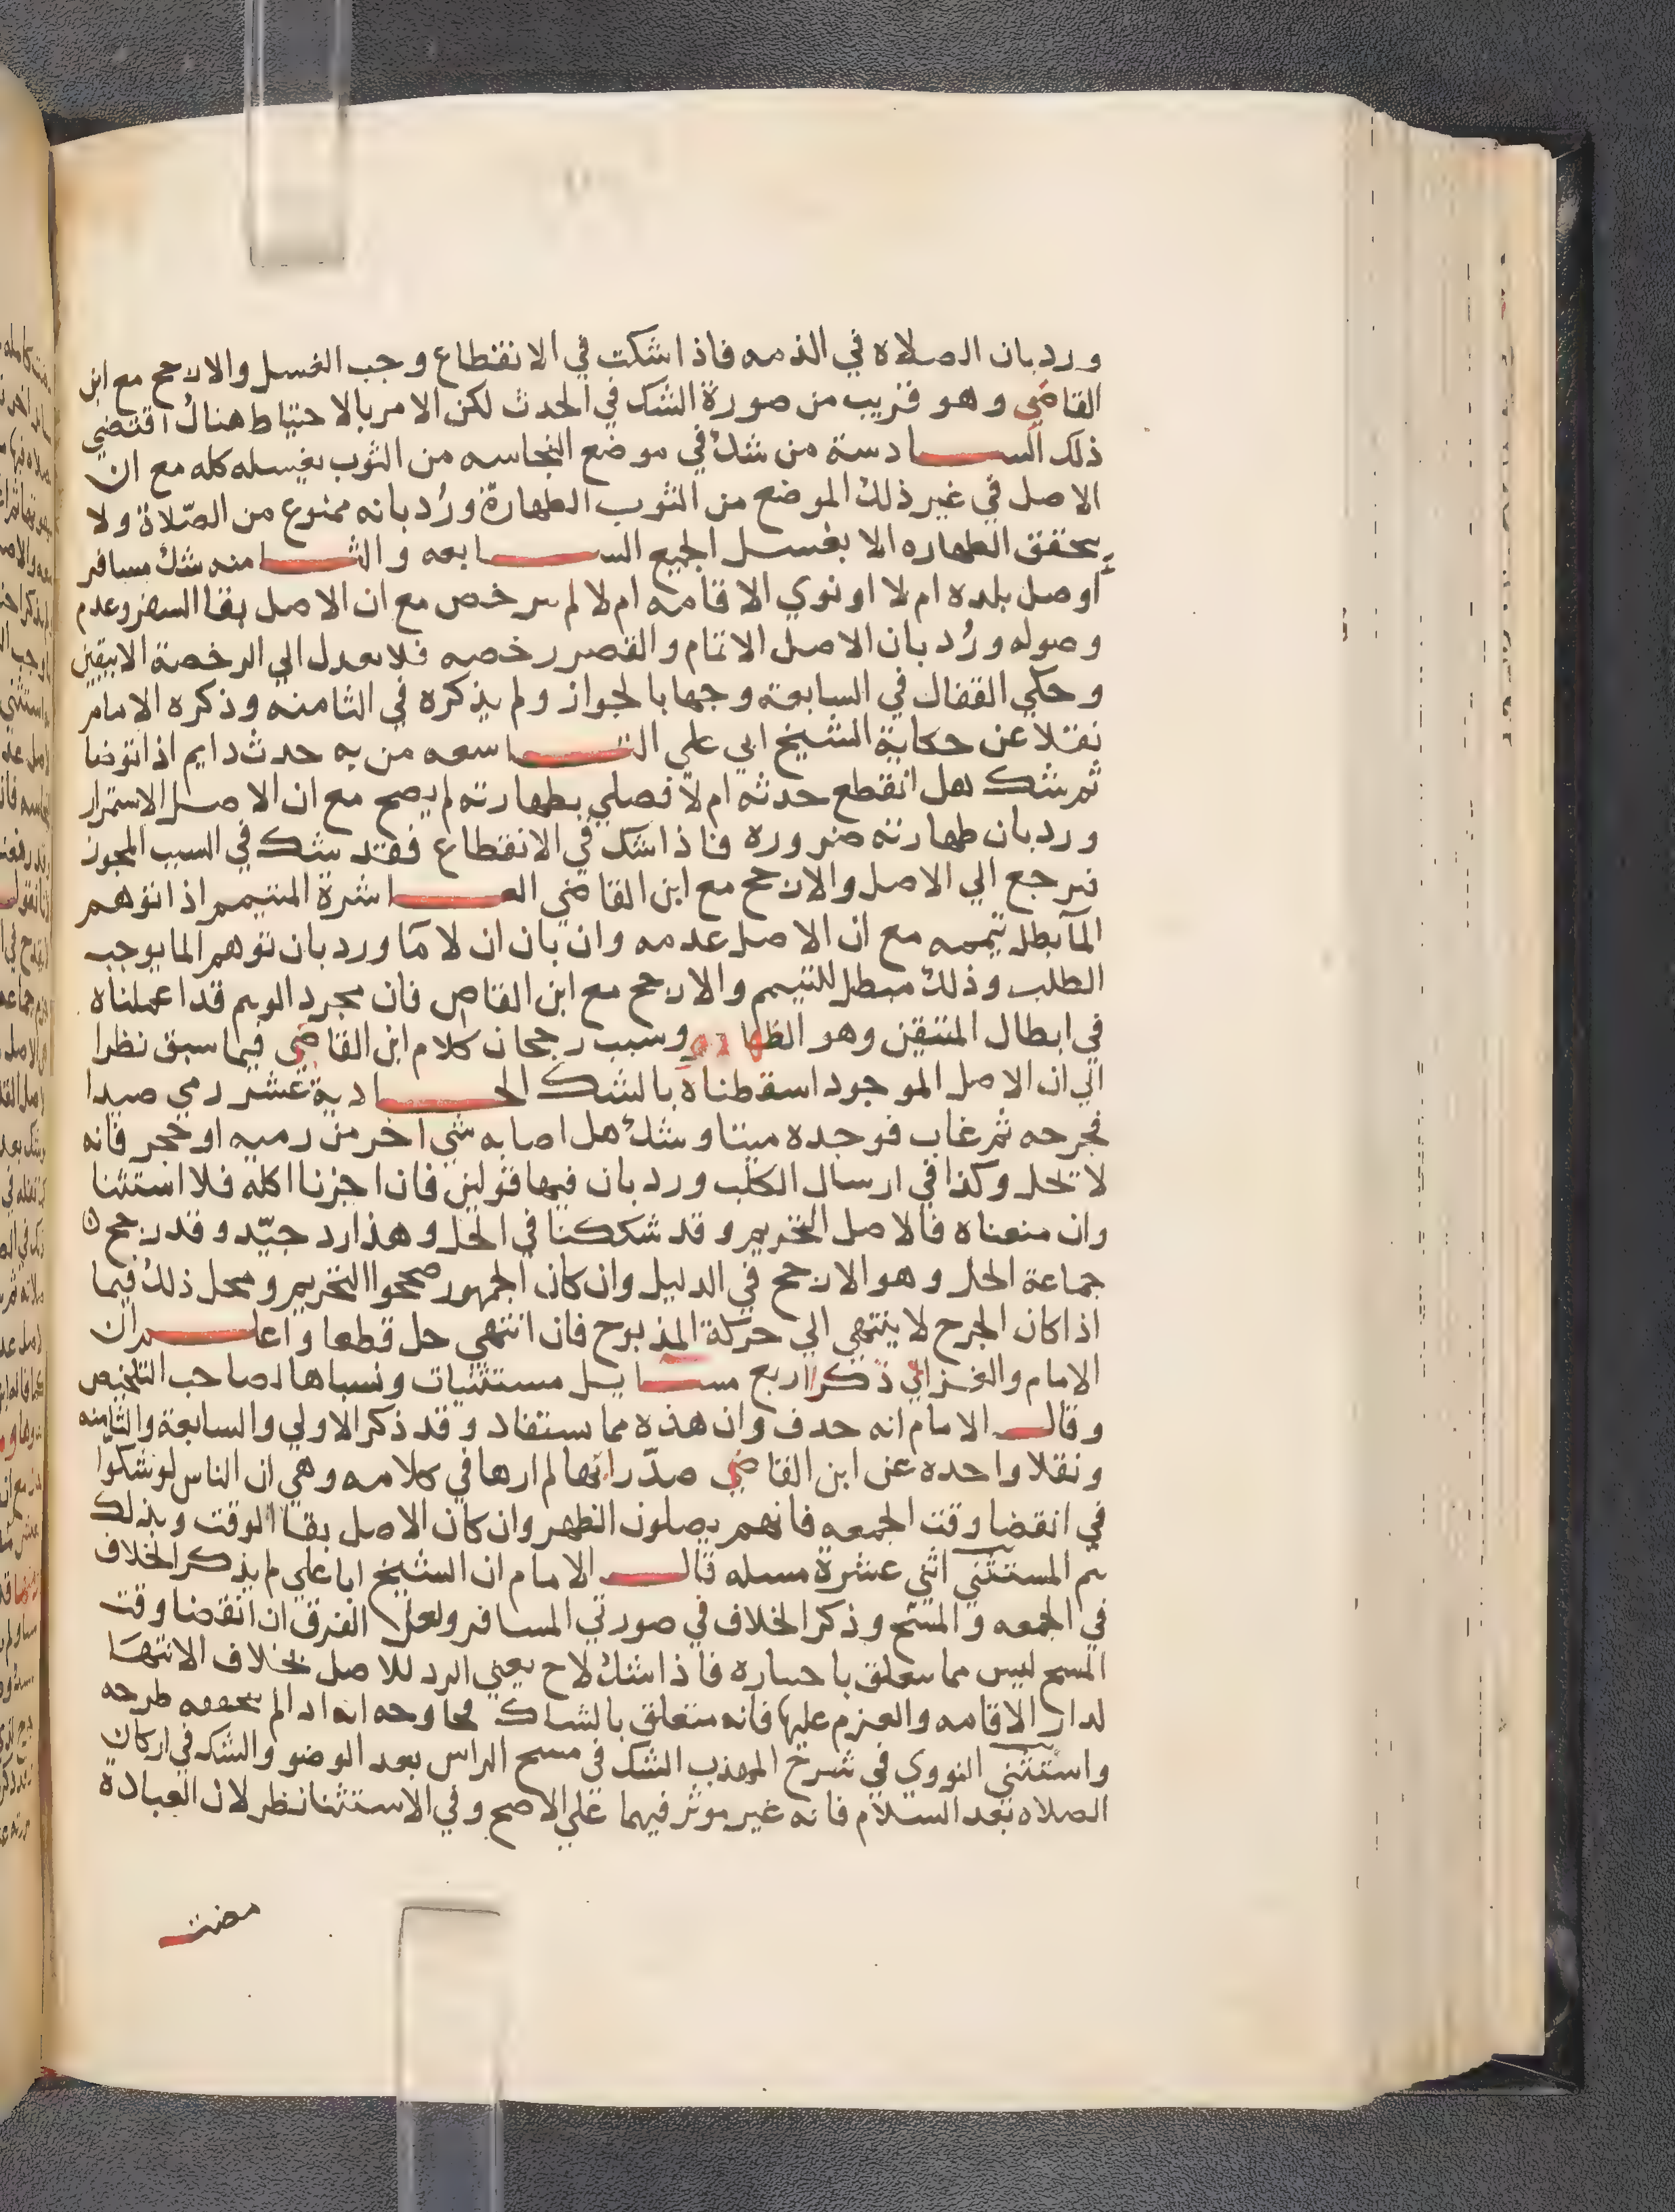 ورد بان الصلاة في الذمه فاذا شكت في الانقطاع وجب الغسل والارجح مع ابن
القاضي وهو قريب من صورة الشك في الحدث لكن الامر بالاحتياط هناك اقتضي
ذلك السادسة من شك في موضع النجاسه من الثوب يغسله كله مع ان
الاصل في غير ذلك الموضع من الثوب الطهارة ورُد بانه ممنوع من الصّلاة ولا
يتحقق الطهاره الا بغسل الجميع السابعه والثامنه شك مسافر
اوصل بلده ام لا او نوي الاقامه ام لا لم يترخص مع ان الاصل بقا السفر وعدم
وصوله ورُد بان الاصل الاتمام والقصر رخصه فلا يعدل الي الرخصة الا بيقين
وحكي القفال في السابعة وجها بالجواز ولم يذكره في الثامنه وذكره الامام
نقلا عن حكاية الشيخ ابي علي التاسعه من به حدث دايم اذا توضا
ثم شك هل انقطع حدثه ام لا فصلي بطهارته لم يصح مع ان الاصل الاستمرار
ورد بان طهارته ضروره فاذا شك في الانقطاع فقد شك في السبب المجوز
فيرجع الي الاصل والارجح مع ابن القاضي العاشرة المتيمم اذا توهم
المآ بطل تيممه مع ان الاصل عدمه وان بان ان لا مآ ورد بان توهم الما يوجب
الطلب وذلك مبطل للتيمم والارجح مع ابن القاص فان مجرد الوهم قد اعملناه
في ابطال المتيقن وهو الطهاره وسبب رجحان كلام ابن القاضي فيما سبق نظرا
الي ان الاصل الموجود اسقطناه بالشك الحادية عشر رمي صيدا
فجرحه ثم غاب فوجده ميتا وشك هل اصابه شي اخر من رميه او حجر فانه
لا يحل وكذا في ارسال الكلب ورد بان فيها قولين فان اجزنا اكله فلا استثنا
وان منعناه فالاصل التحريم وقد شككنا في الحل وهذا رد جيّد وقد رجح
جماعة الحل وهو الارجح في الدليل وان كان الجمهور صححوا التحريم ومحل ذلك فيما
اذا كان الجرح لا ينتهي الي حركة المذبوح فان انتهي حل قطعا واعلم ان
الامام والغزالي ذكرا اربع مسايل مستثنيات ونسباها لصاحب التلخيص
وقال الامام انه حدف وان هذه مما يستفاد وقد ذكر الاولي والسابعة والثامنه
ونقلا واحده عن ابن القاضي صدّرا بها لم ارها في كلامه وهي ان الناس لو شكوا
في انقضا وقت الجمعه فانهم يصلون الظهر وان كان الاصل بقا الوقت وبذلك
يتم المستثني اثني عشرة مسله قال الامام ان الشيخ ابا علي لم يذكر الخلاف
في الجمعه والمسح وذكر الخلاف في صورتي المسافر ولعل الفرق ان انقضا وقت
المسح ليس مما يتعلق باختياره فاذا شك لاح يعني الرد للاصل بخلاف الانتهآ
لدار الاقامه والعزم عليها فانه متعلق بالشاك انه اذا لم يتحققه طرحه
واستثني النووي في شرح المهذب الشك في مسح الراس بعد الوضو والشك في اركان
الصلاه بعد السلام فانه غير موثر فيهما علي الاصح وفي الاستثنا نظر لان العبادة
مضت